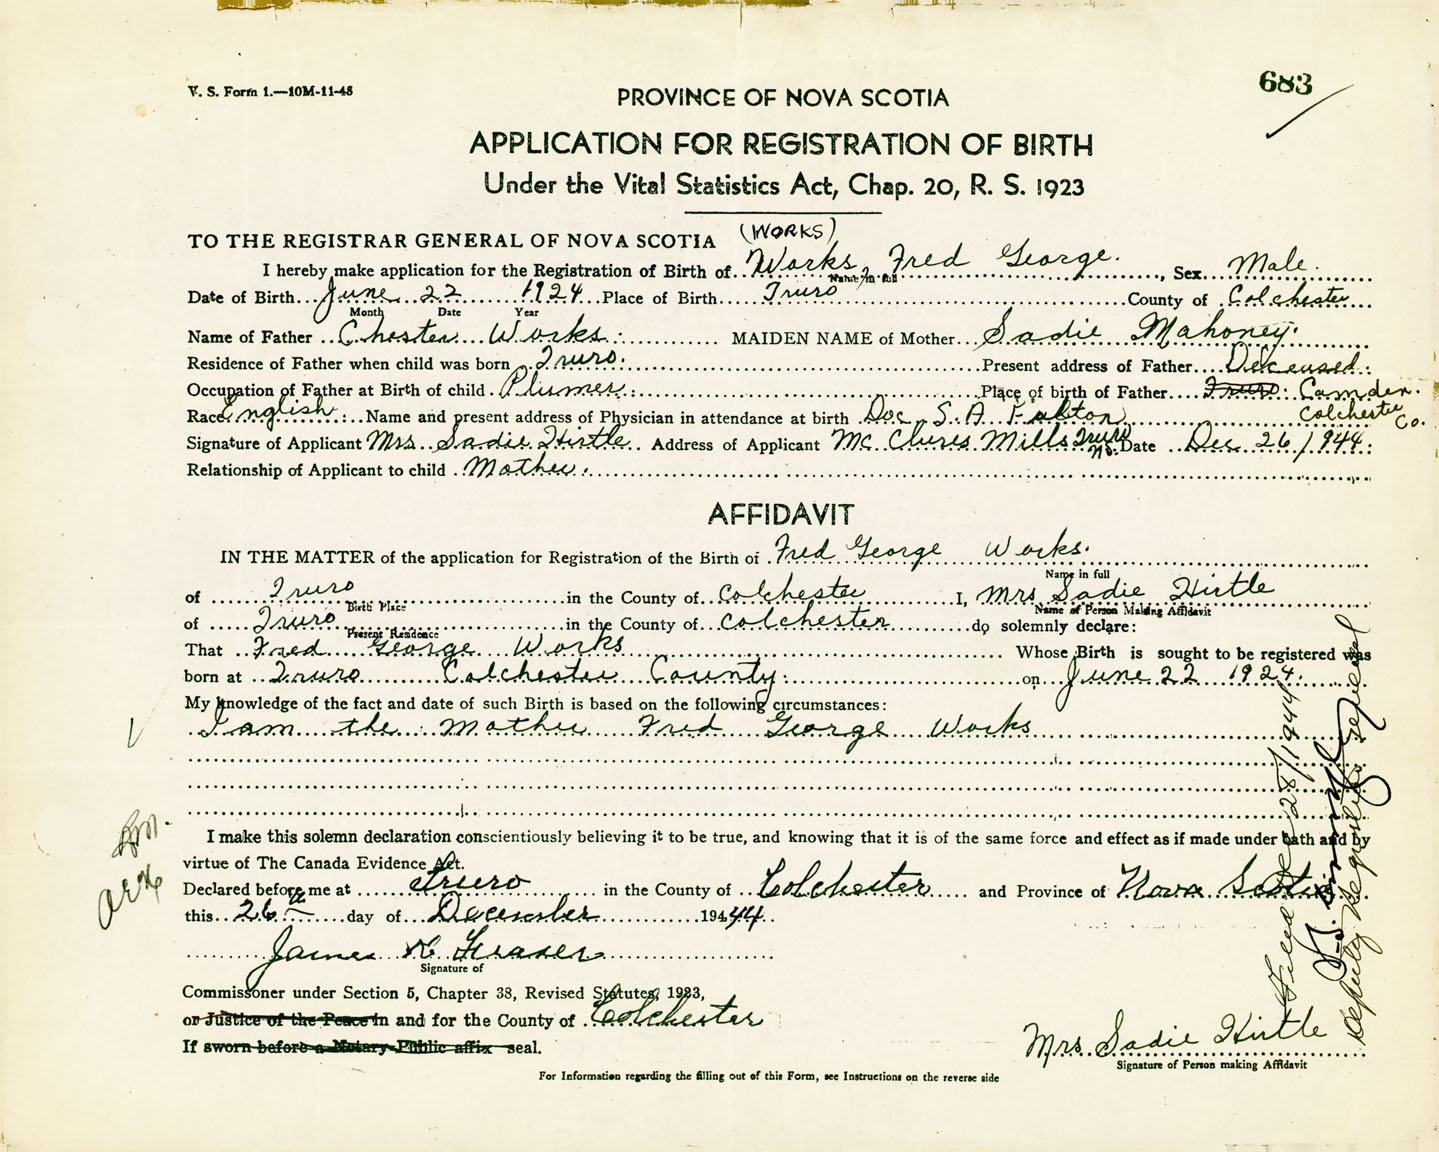 V. S. Form 1.—10M-11-43
683
PROVINCE OF NOVA SCOTIA
APPLICATION FOR REGISTRATION OF BIRTH
Under the Vital Statistics Act, Chap. 20, R. S. 1923
TO THE REGISTRAR GENERAL OF NOVA SCOTIA (WORKS)
I hereby make application for the Registration of Birth of Works, Fred George. , Sex Male.
Name in full
Date of Birth June 22 1924 Place of Birth Truro County of Colchester
Month Date Year
Name of Father Chester Works. MAIDEN NAME of Mother Sadie Mahoney.
Residence of Father when child was born Truro. Present address of Father Deceased.
Occupation of Father at Birth of child Plumer. Place of birth of Father Truro. Camden.
Colchester Co.
Race English. Name and present address of Physician in attendance at birth Doc S. A. Fulton
Signature of Applicant Mrs. Sadie Hirtle Address of Applicant Mc Clures Mills Truro N.S. Date Dec 26/1944.
Relationship of Applicant to child Mother.
AFFIDAVIT
IN THE MATTER of the application for Registration of the Birth of Fred George Works.
Name in full
of Truro in the County of Colchester I, Mrs Sadie Hirtle
Birth Place Name of Person Making Affidavit
of Truro in the County of Colchester do solemnly declare:
Present Residence
That Fred George Works Whose Birth is sought to be registered was
born at Truro Colchester County. on June 22 1924.
My knowledge of the fact and date of such Birth is based on the following circumstances:
I am the Mother Fred George Works
I make this solemn declaration conscientiously believing it to be true, and knowing that it is of the same force and effect as if made under oath and by
virtue of The Canada Evidence Act.
Declared before me at Truro in the County of Colchester and Province of Nova Scotia
this 26th day of December 1944
James Fraser
Signature of
Commissoner under Section 5, Chapter 38, Revised Statutes, 1923,
or Justice of the Peace in and for the County of Colchester
If sworn before a Notary Public affix seal.
Mrs. Sadie Hirtle
Signature of Person making Affidavit
For Information regarding the filling out of this Form, see Instructions on the reverse side
Filed Dec 28/1944
Deputy Registrar General